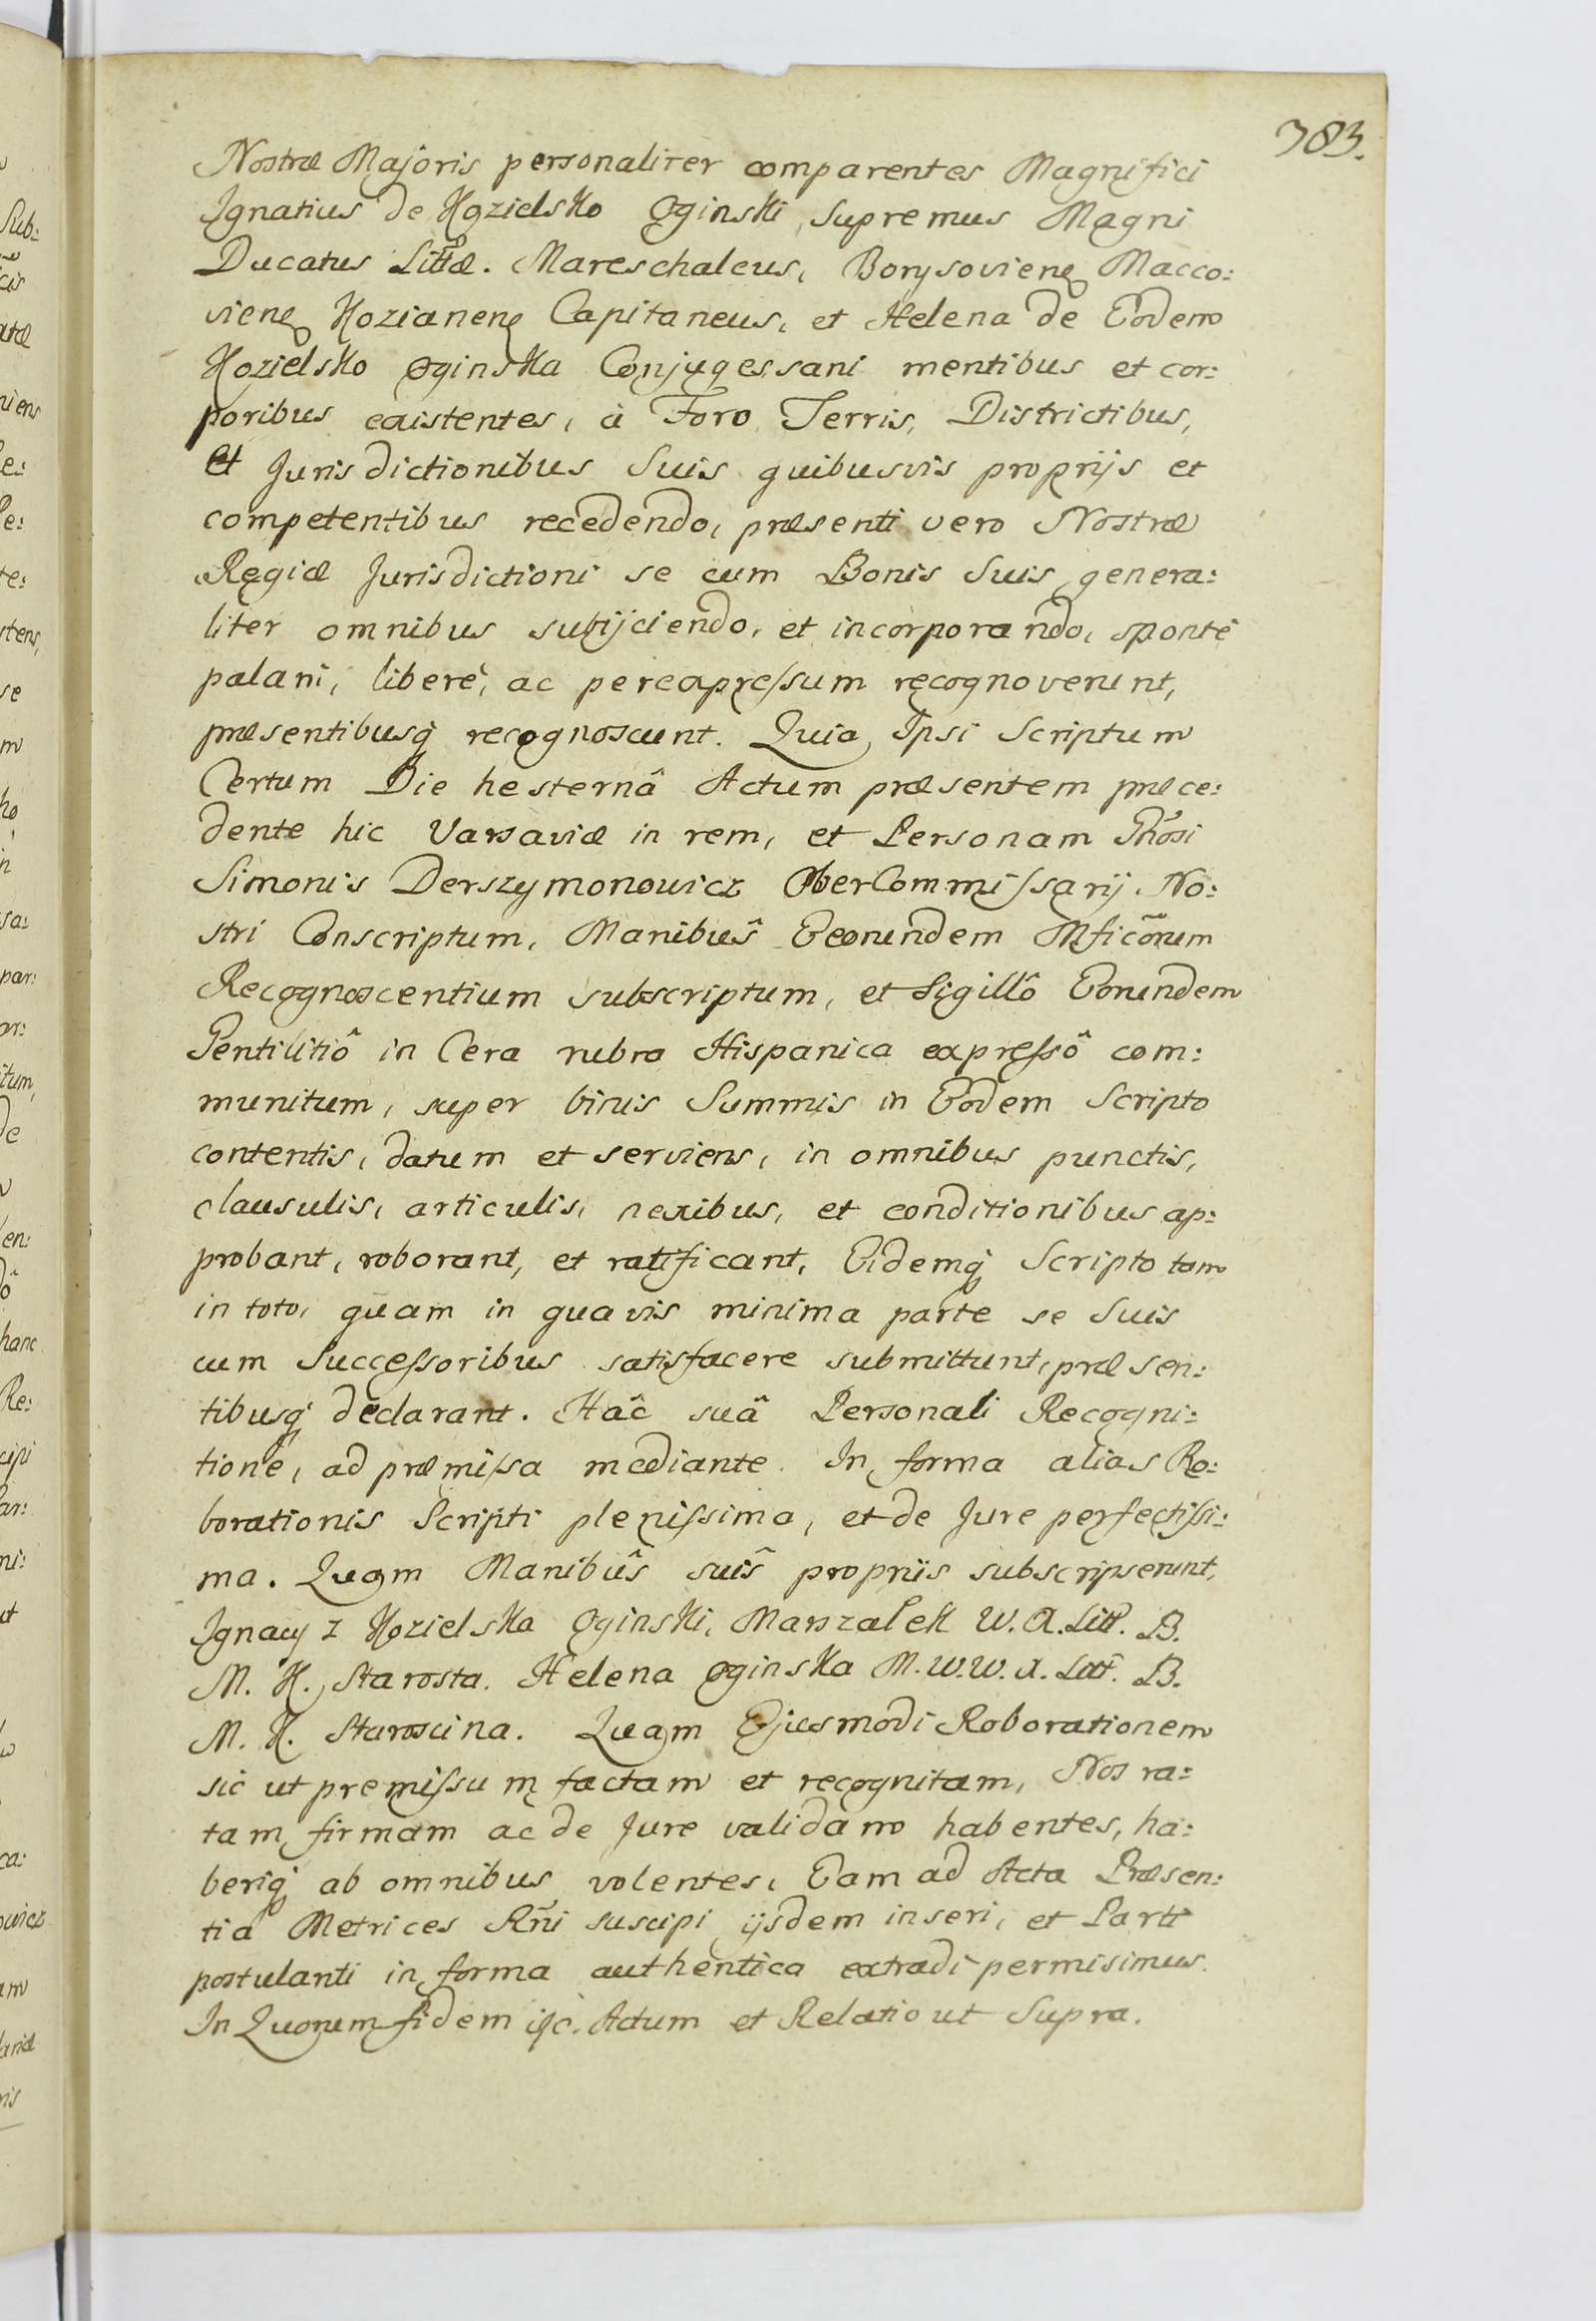 383.
Nostræ Majoris personaliter comparentes Magnifici
Ignatius de Kozielsko Oginski, Supremus Magni
Ducatus Littæ. Mareschalcus, Borysovien, Macco:
vien, Kozianen, Capitaneus, et Helena de Eodem
Kozielsko Oginska Conjuges, sani mentibus et cor:
poribus existentes, à Foro, Terris, Districtibus,
et Jurisdictionibus Suis quibusvis proprijs et
competentibus recedendo, præsenti vero Nostræ
Regiæ Jurisdictioni se cum Bonis Suis genera:
liter omnibus subijciendo, et incorporando, spontè
palam, liberè, ac per expressum recognoverunt,
præsentibusq recognoscunt. Quia Ipsi Scriptum
Certum Die hesternâ Actum præsentem præce:
dente hic Varsaviæ in rem, et Personam Gnosi
Simonis Derszymonowicz OberCommissarij No:
stri Conscriptum, Manibus Eeorundem Mficorum
Recognoscentium subscriptum, et Sigillô Eorundem
Gentilitiô in Cera rubra Hispanica expressô com:
munitum, super binis Summis in Eodem Scripto
contentis, datum et serviens, in omnibus punctis,
clausulis, articulis, nexibus, et conditionibus ap:
probant, roborant, et ratificant, Eidemq Scripto tam
in toto, quam in quavis minima parte se Suis
cum Successoribus satisfacere submittunt, præsen:
tibusq declarant. Hâc suâ Personali Recogni:
tione, ad præmissa mediante. In forma alias Ro:
borationis Scripti plenissima, et de Jure perfectissi:
ma. Quam Manibûs suîs propriis subscripserunt.
Ignacy z Kozielska Oginski, Marszalek W. X. Litt. B.
M. K. Starosta. Helena Oginska M. W. W. X. Litt. B.
M. K. Staroscina. Quam Ejusmodi Roborationem
sic ut premissum factam et recognitam, Nos ra:
tam, firmam ac de Jure validam habentes, ha:
beriq ab omnibus volentes, Eam ad Acta Præsen:
tia Metrices Rñi suscipi, ijsdem inseri, et Parti
postulanti in forma authentica extradi permisimus.
In Quorum fidem Actum et Relatio ut Supra.